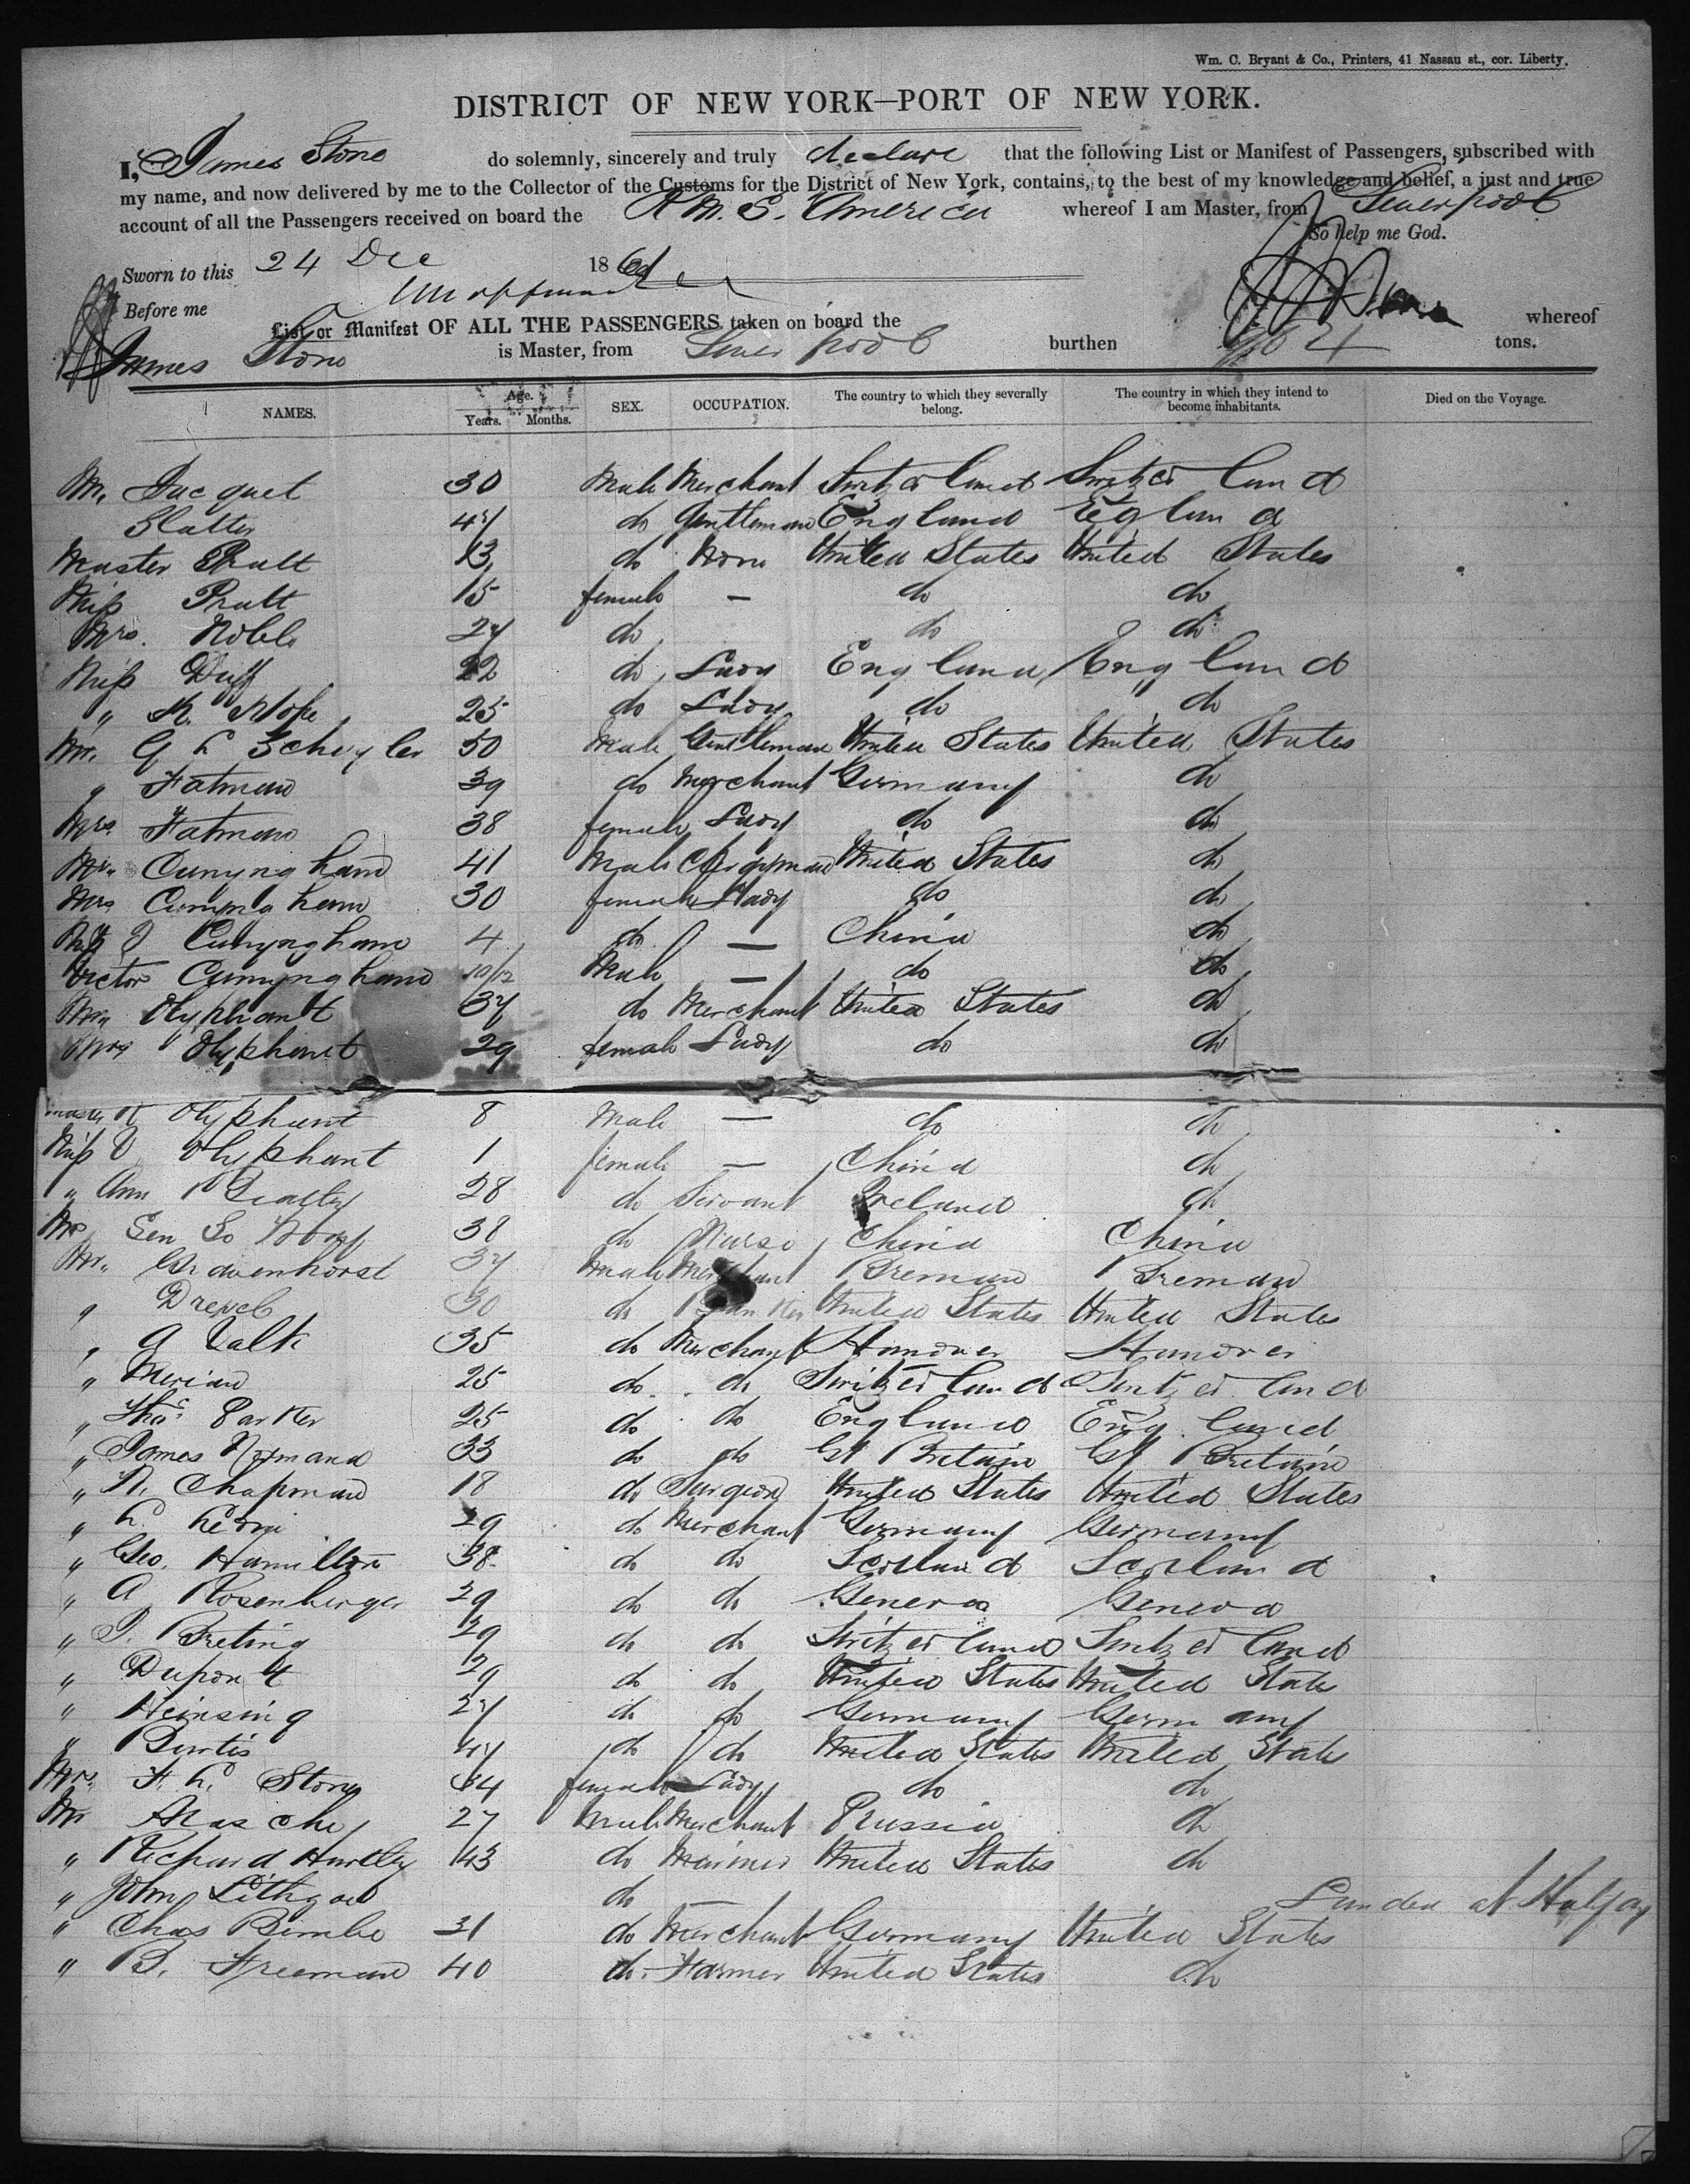 Wm. C. Bryant & Co., Printers, 41 Nassau st., cor. Liberty.
DISTRICT OF NEW YORK—PORT OF NEW YORK.
I, James Stone do solemnly, sincerely and truly declare that the following List or Manifest of Passengers, subscribed with
my name, and now delivered by me to the Collector of the Customs for the District of New York, contains, to the best of my knowledge and belief, a just and true
account of all the Passengers received on board the R M. S. America whereof I am Master, from Liverpool
So help me God.
Sworn to this 24 Dec 186
Before me
List or Manifest OF ALL THE PASSENGERS taken on board the whereof
James Stone is Master, from Liverpool burthen tons.
NAMES. Age. Years. Months. SEX. OCCUPATION. The country to which they severally belong. The country in which they intend to become inhabitants. Died on the Voyage.
Mr. Jacquet 30 Male Merchant Switzerland Switzerland
Slatter 47 do Gentleman England Egland
Master Pratt 13 do None United States United States
Miss Pratt 15 female — do do
Mrs. Noble 27 do do do
Miss Duff 22 do Lady England England
" K. Hope 25 do Lady do do
Mr. G L Schuyler 50 Male Gentleman United States United States
" Fatman 39 do Merchant Germany do
Mrs. Fatman 38 female Lady do do
Mr. Cunyngham 41 Male Clergyman United States do
Mrs Cunyngham 30 female Lady do do
Cunyngham 4 do — China do
Victor Cunyngham 10/12 Male — do do
Mr. Olyphant 37 do Merchant United States do
Mrs Olyphant 29 female Lady do do
Master R Olyphant 8 Male — do do
Miss Olyphant 1 female — China do
" Ann 28 do Servant Ireland do
Mrs Sen So 38 do Nurse China China
Mr. Gravenhorst 37 Male Merchant Breman Breman
" Drexel 30 do Banker United States United States
" A Valk 35 do Merchant Hanover Hanover
" Merian 25 do do Switzerland Switzerland
" Thos. Parker 25 do do England England
" James Normand 33 do do Gt Britain Gt Britain
" N. Chapman 18 do Surgeon United States United States
" L. 29 do Merchant Germany Germany
" Geo. Hamilton 38 do do Scotland Scotland
" A Rosenberger 29 do do Geneva Geneva
" J. Breting 29 do do Switzerland Switzerland
" Dupont 29 do do United States United States
" Heinsing 27 do do Germany Germany
" Burtis 47 do do United States United States
Mrs. F. L. Stone 34 female Lady do do
Mr 27 Male Merchant Prussia do
" Richard Hartley 43 do Mariner United States do
" John Lithgow do Landed at Halifax
" Chas Bimbe 31 do Merchant Germany United States
" B. Freeman 40 do. Farmer United States do